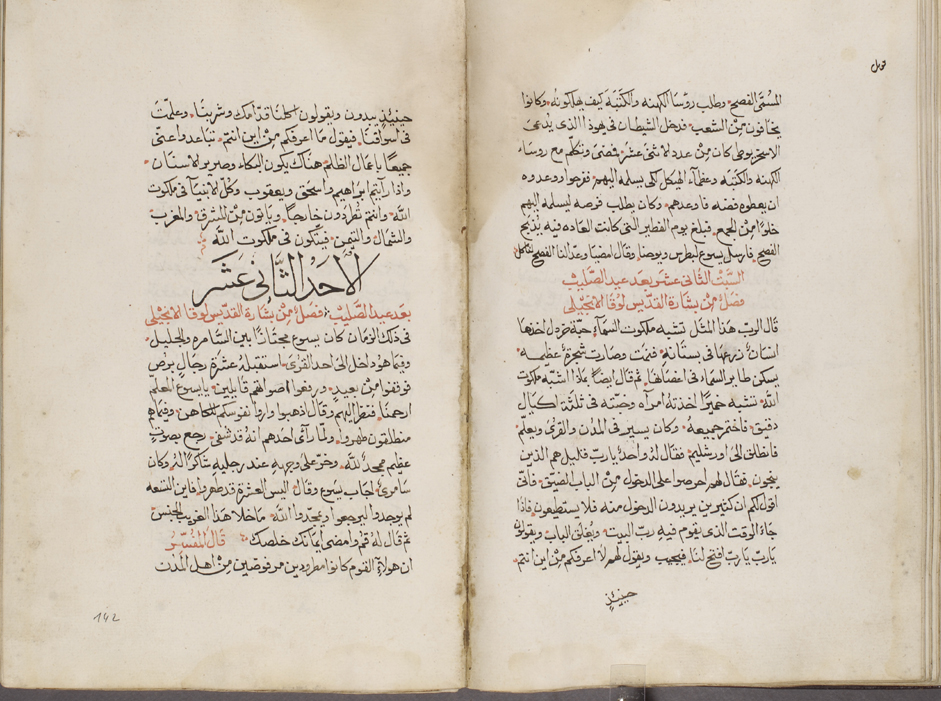 قوبل
المسمّى الفصح وطلب رؤسا الكهنه والكتبة كيف يهلكونه وكانوا
يخافون مِنْ الشعب فدخل الشيطان فى هوذا الذى يُدعَى
الاسخريوطى كان مِنْ عدد لاثنى عشر فمضى وتكلّم مع روساء
الكهنه والكتبه وعظماء الهيكل لكى يسلمه اليهم ففرحوا ووعدوه
ان يعطوه فضه فاوعدهم وكان يطلب فرصه ليسلمه اليهم
خلوًا مِنْ الجمع فبلغ يوم الفطير التى كانت العاده فيه يُذبح
الفصح فارسل يسوع لبطرس ويوحنا وقال امضيا وعدّا لنا الفصح لناكل
السَّبت الثّانى عشر بعد عيد الصّليب
فصل مِنْ بشارة القدّيس لوقا الانجيلى
قال الرب هذا المثل تشبه ملكوت السمآء حبّة خردل اخذها
انسان زرعها فى بستانه فنمت وصارت شجرة عظيمه
يسكن طاير السماء فى اغصانها ثم قال ايضًا بماذا اشبّه ملكوت
الله تشبه خميرًا اخذتهُ امرآه وخبّته فى ثلثة اكيال
دقيق فاختمر جميعهُ وكان يسير فى المدن والقرى ويعلم
فانطلق الى اورشليم فقال لهُ واحدٌ يا ربّ قليل هم الذين
ينجون فقال لهم احرصوا على الدخول مِنْ الباب الضيّق فانّى
اقول لكم ان كثيرين يريدون الدخول منه فلا يستطيعون فاذا
جاءَ الوقت الذى يقوم فيه ربّ البيت ويُغلق الباب ويقولون
يا ربّ يا ربّ افتح لنا فيجيب ويقول لهم لا اعرفكم مِنْ اين انتم
حينيذٍ
حينيذٍ يبدون ويقولون اكلنا قدّامك وشربنا وعلّمتَ
فى اسواقنا فيقول ما اعرفكم مِنْ اين انتم تباعدوا عنّى
جميعًا يا عمّال الظلم هناك يكون البكاء وصرير الاسنان
واذا رايتم ابراهيم واسحق ويعقوب وكل الانبيآ فى ملكوت
الله وانتم تُطردون خارجًا وياتون مِنْ المشرق والمغرب
والشمال والتّيمن فيتّكون فى ملكوت الله
الأحد الثّانى عَشر
بعد عيد الصّليب فصل مِنْ بشارة القدّيس لوقا الانجيلى
فى ذلك الزمان كان يسوع مجتازًا بين السّامره والجليل
وفيما هو داخل الى احد القرى استقبله عشرة رجال برص
فوقفوا مِنْ بعيدٍ ورفعوا اصواتهم قايلين يا يسوع المعلم
ارحمنا فنظر اليهم وقال اذهبوا واروا نفوسكم للكاهن وفيما هم
منطلقون طهروا ولمّا رآى احدهم انهُ قد شفى رجع بصوتٍ
عظيم يمجد لله وخرّ على وجهه عند رجليه شاكرًا لهُ وكان
سامرىٌ اجاب يسوع وقال اليس العشرة قد طهروا فاين التسعه
لم يوجدوا ليرجعوا ويمجدوا الله ما خلا هذا الغريب الجنس
ثم قال له قم وامضى ايمانك خلصك قال المُفسّر
ان هولآء القوم كانوا مطرودين مرفوضين مِنْ اهل المدن
142